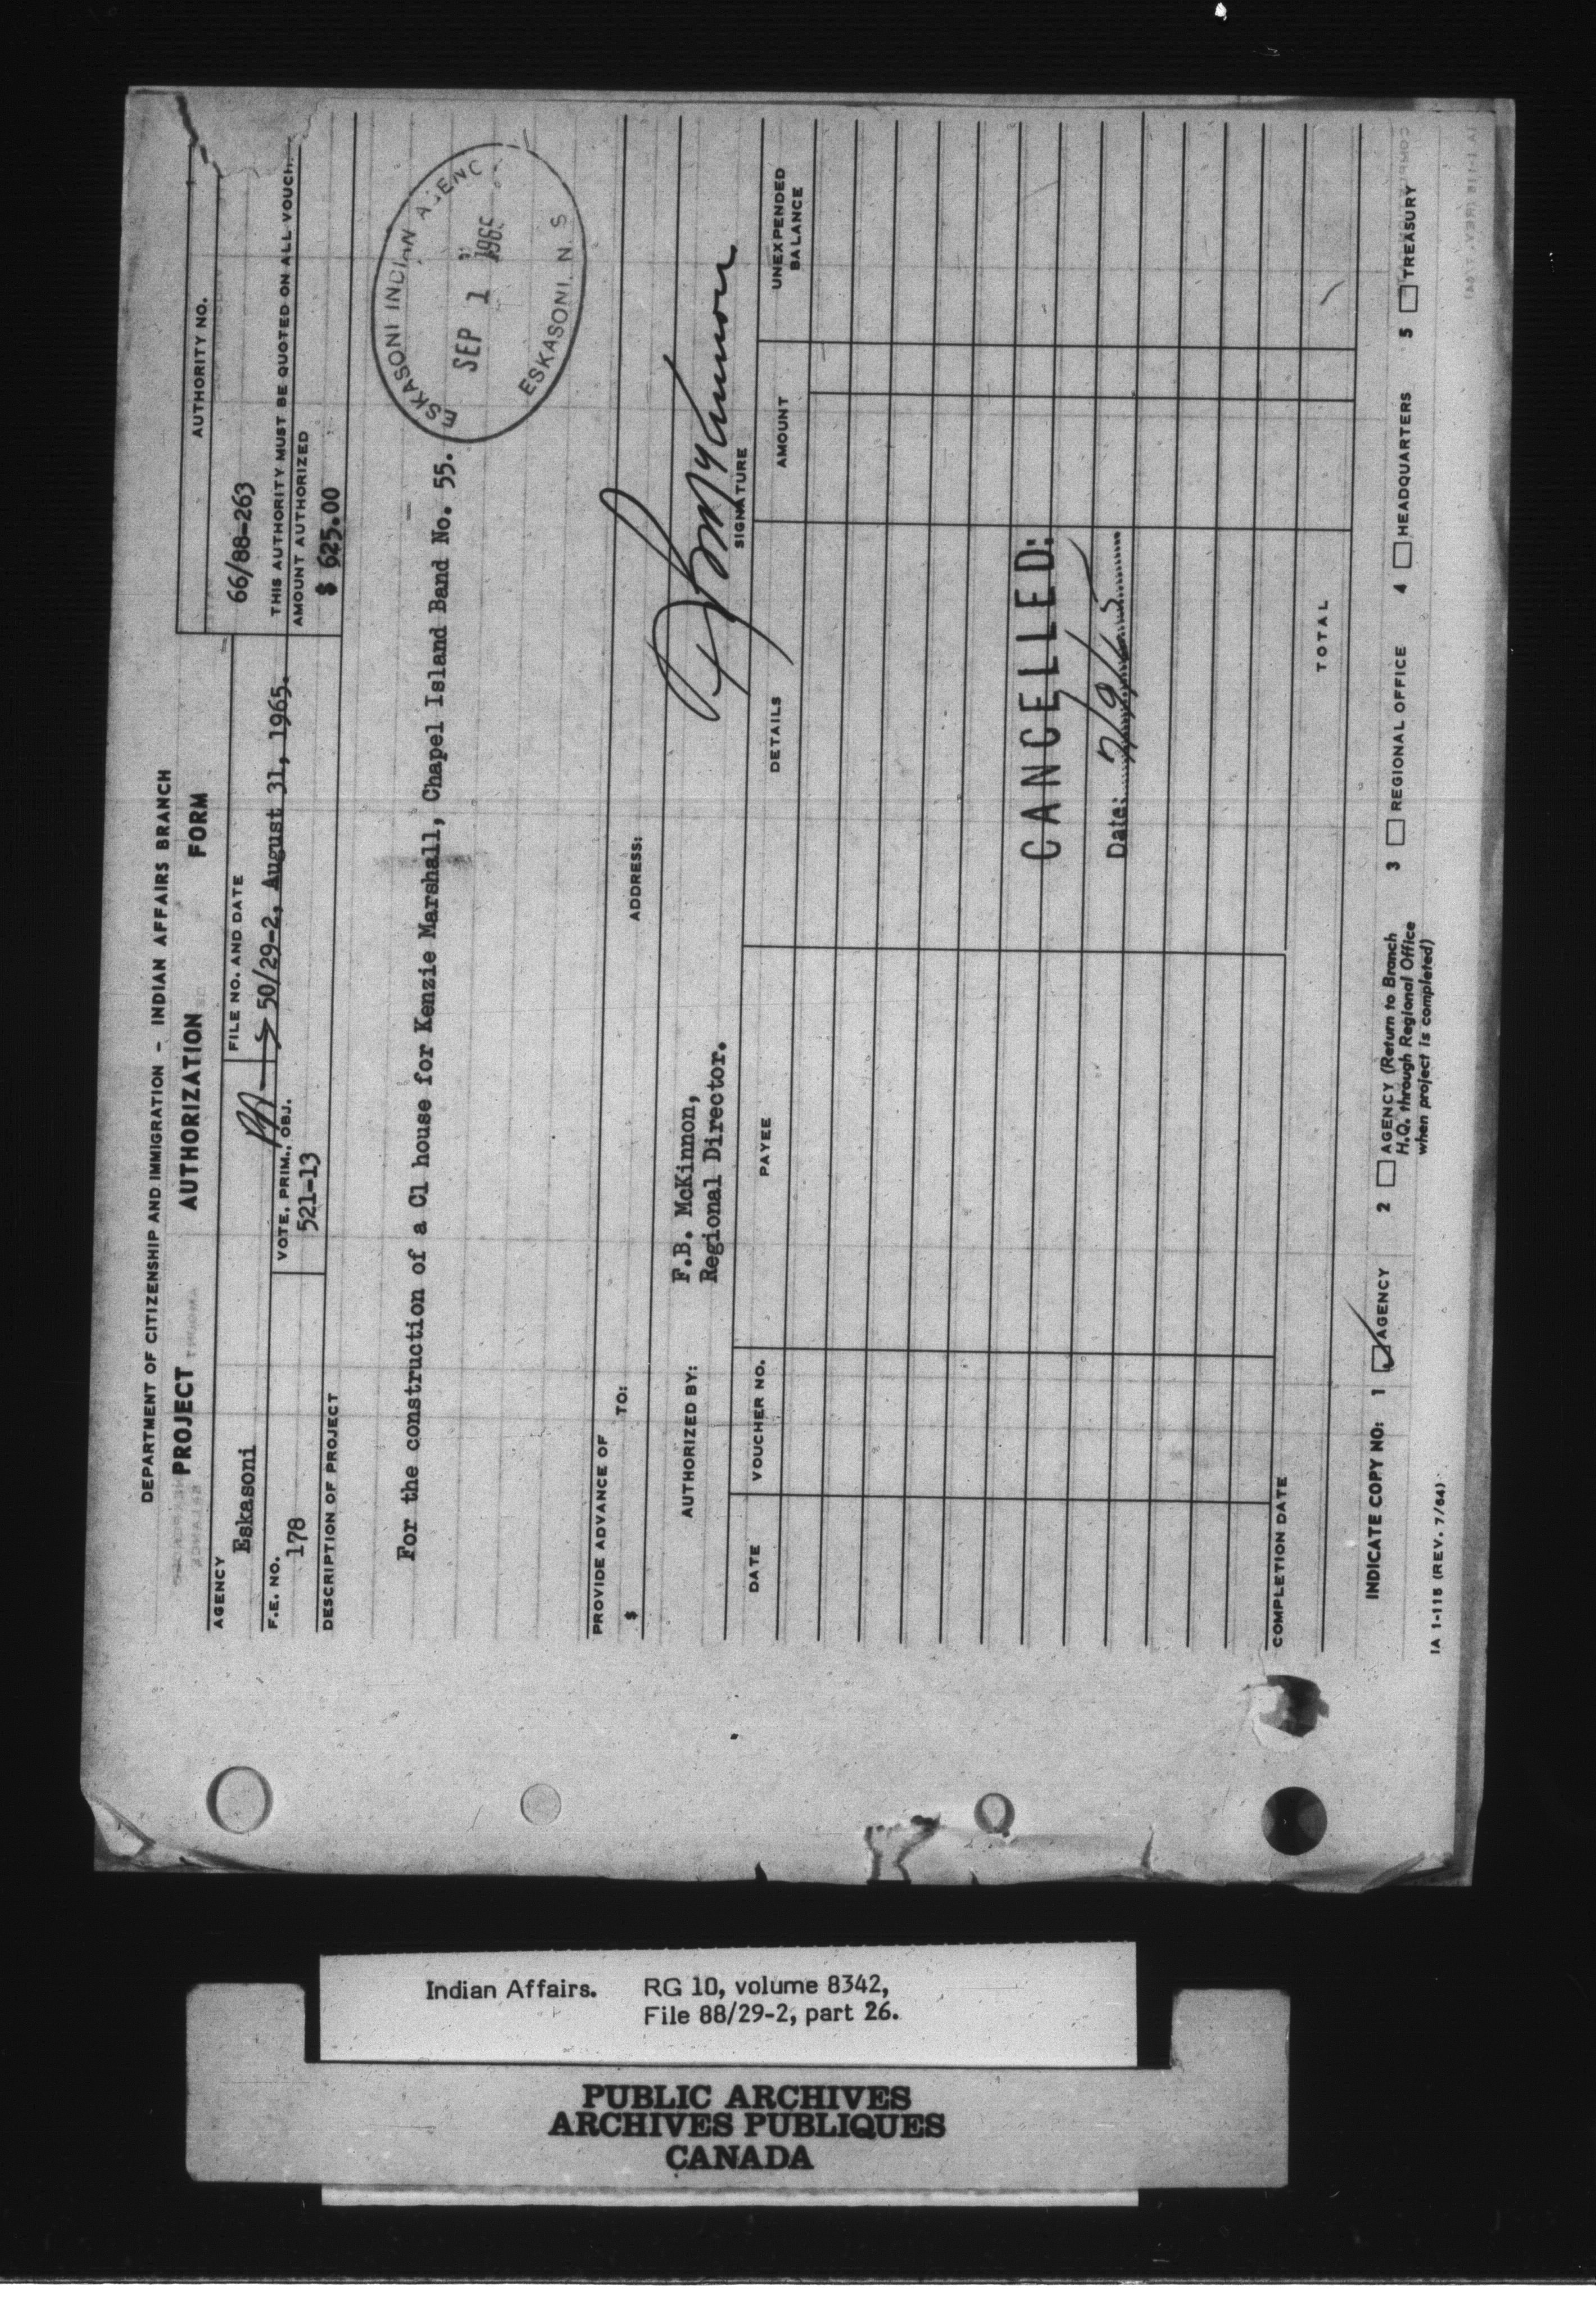 DEPARTMENT OF CITIZENSHIP AND IMMIGRATION - INDIAN AFFAIRS BRANCH
PROJECT AUTHORIZATION FORM
AUTHORITY NO.
66/88-263
THIS AUTHORITY MUST BE QUOTED ON ALL VOUCH
AMOUNT AUTHORIZED
$ 625.00
AGENCY
Eskasoni
FILE NO. AND DATE
50/29-2, August 31, 1965.
F.E. NO.
178
VOTE, PRIM., OBJ.
521-13
DESCRIPTION OF PROJECT
For the construction of a C1 house for Kenzie Marshall, Chapel Island Band No. 55.
ESKASONI INDIAN AGENC
SEP 1 1965
ESKASONI, N. S
PROVIDE ADVANCE OF
$
TO:
ADDRESS:
AUTHORIZED BY:
F.B. McKinnon,
Regional Director.
SIGNATURE
DATE VOUCHER NO. PAYEE DETAILS AMOUNT UNEXPENDED BALANCE
CANCELLED:
Date:
COMPLETION DATE
TOTAL
INDICATE COPY NO: 1 AGENCY 2 AGENCY (Return to Branch H.Q. through Regional Office when project is completed) 3 REGIONAL OFFICE 4 HEADQUARTERS 5 TREASURY
IA 1-115 (REV. 7/64)
Indian Affairs. RG 10, volume 8342,
File 88/29-2, part 26.
PUBLIC ARCHIVES
ARCHIVES PUBLIQUES
CANADA